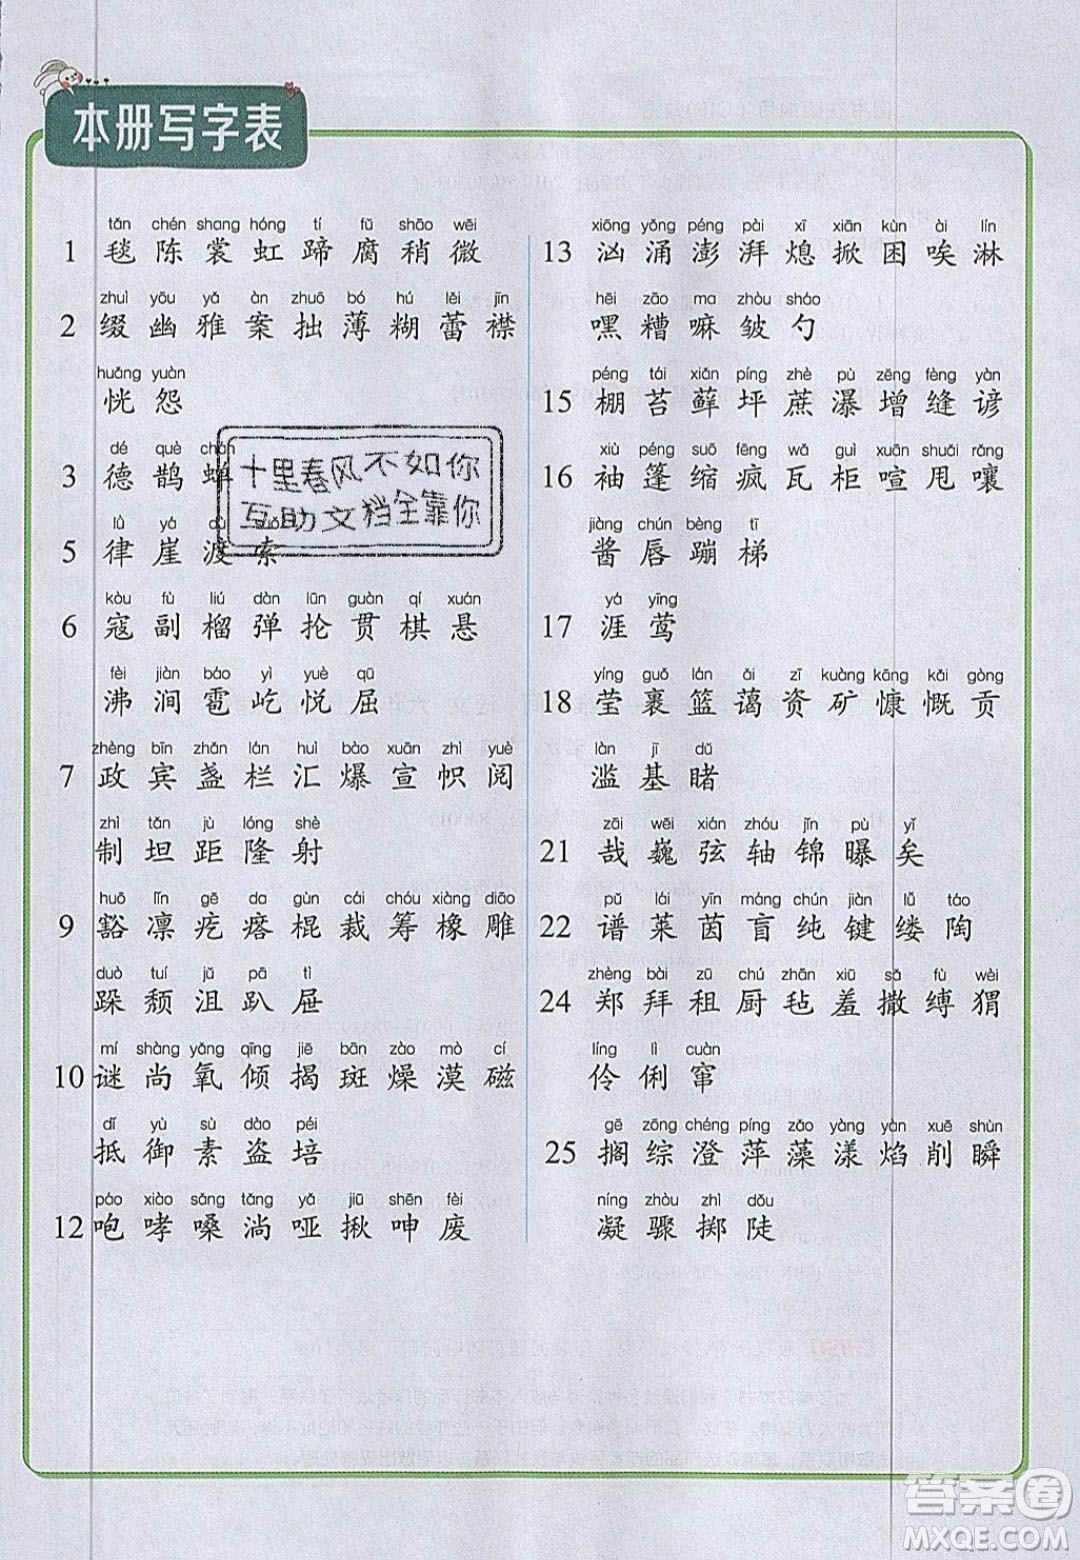 本册写字表
tǎn chén shang hóng tí fǔ shāo wēi
1 毯 陈 裳 虹 蹄 腐 稍 微
zhuì yōu yǎ àn zhuō bó hú lěi jīn
2 缀 幽 雅 案 拙 薄 糊 蕾 襟
huǎng yuàn
恍 怨
dé què chán
3 德 鹊 蝉
lǜ yá dù suǒ
5 律 崖 渡 索
kòu fù liú dàn lūn guàn qí xuán
6 寇 副 榴 弹 抡 贯 棋 悬
fèi jiàn báo yì yuè qū
沸 涧 雹 屹 悦 屈
zhèng bīn zhǎn lán huì bào xuān zhì yuè
7 政 宾 盏 栏 汇 爆 宣 帜 阅
zhì tǎn jù lóng shè
制 坦 距 隆 射
huō lǐn gē da gùn cái chóu xiàng diāo
9 豁 凛 疙 瘩 棍 裁 筹 橡 雕
duò tuí jǔ pā tì
跺 颓 沮 趴 屉
mí shàng yǎng qīng jiē bān zào mò cí
10 谜 尚 氧 倾 揭 斑 燥 漠 磁
dǐ yù sù dào péi
抵 御 素 盗 培
páo xiào sǎng tǎng yǎ jiū shēn fèi
12 咆 哮 嗓 淌 哑 揪 呻 废
xiōng yǒng péng pài xī xiān kùn ài lín
13 汹 涌 澎 湃 熄 掀 困 唉 淋
hēi zāo ma zhòu sháo
嘿 糟 嘛 皱 勺
péng tái xiǎn píng zhè pù zēng fèng yàn
15 棚 苔 藓 坪 蔗 瀑 增 缝 谚
xiù péng suō fēng wǎ guì xuān shuǎi rǎng
16 袖 篷 缩 疯 瓦 柜 喧 甩 嚷
jiàng chún bèng tī
酱 唇 蹦 梯
yá yīng
17 涯 莺
yíng guǒ lán ǎi zī kuàng kāng kǎi gòng
18 莹 裹 篮 蔼 资 矿 慷 慨 贡
làn jī dǔ
滥 基 睹
zāi wēi xián zhóu jǐn pù yǐ
21 哉 巍 弦 轴 锦 曝 矣
pǔ lái yīn máng chún jiàn lǚ táo
22 谱 莱 茵 盲 纯 键 缕 陶
zhèng bài zū chú zhān xiū sā fù wèi
24 郑 拜 租 厨 毡 羞 撒 缚 猬
líng lì cuàn
伶 俐 窜
gē zōng chéng píng zǎo yàng yàn xuē shùn
25 搁 综 澄 萍 藻 漾 焰 削 瞬
níng zhòu zhì dǒu
凝 骤 掷 陡
十里春风不如你
互助文档全靠你
答案圈
MXQE.COM